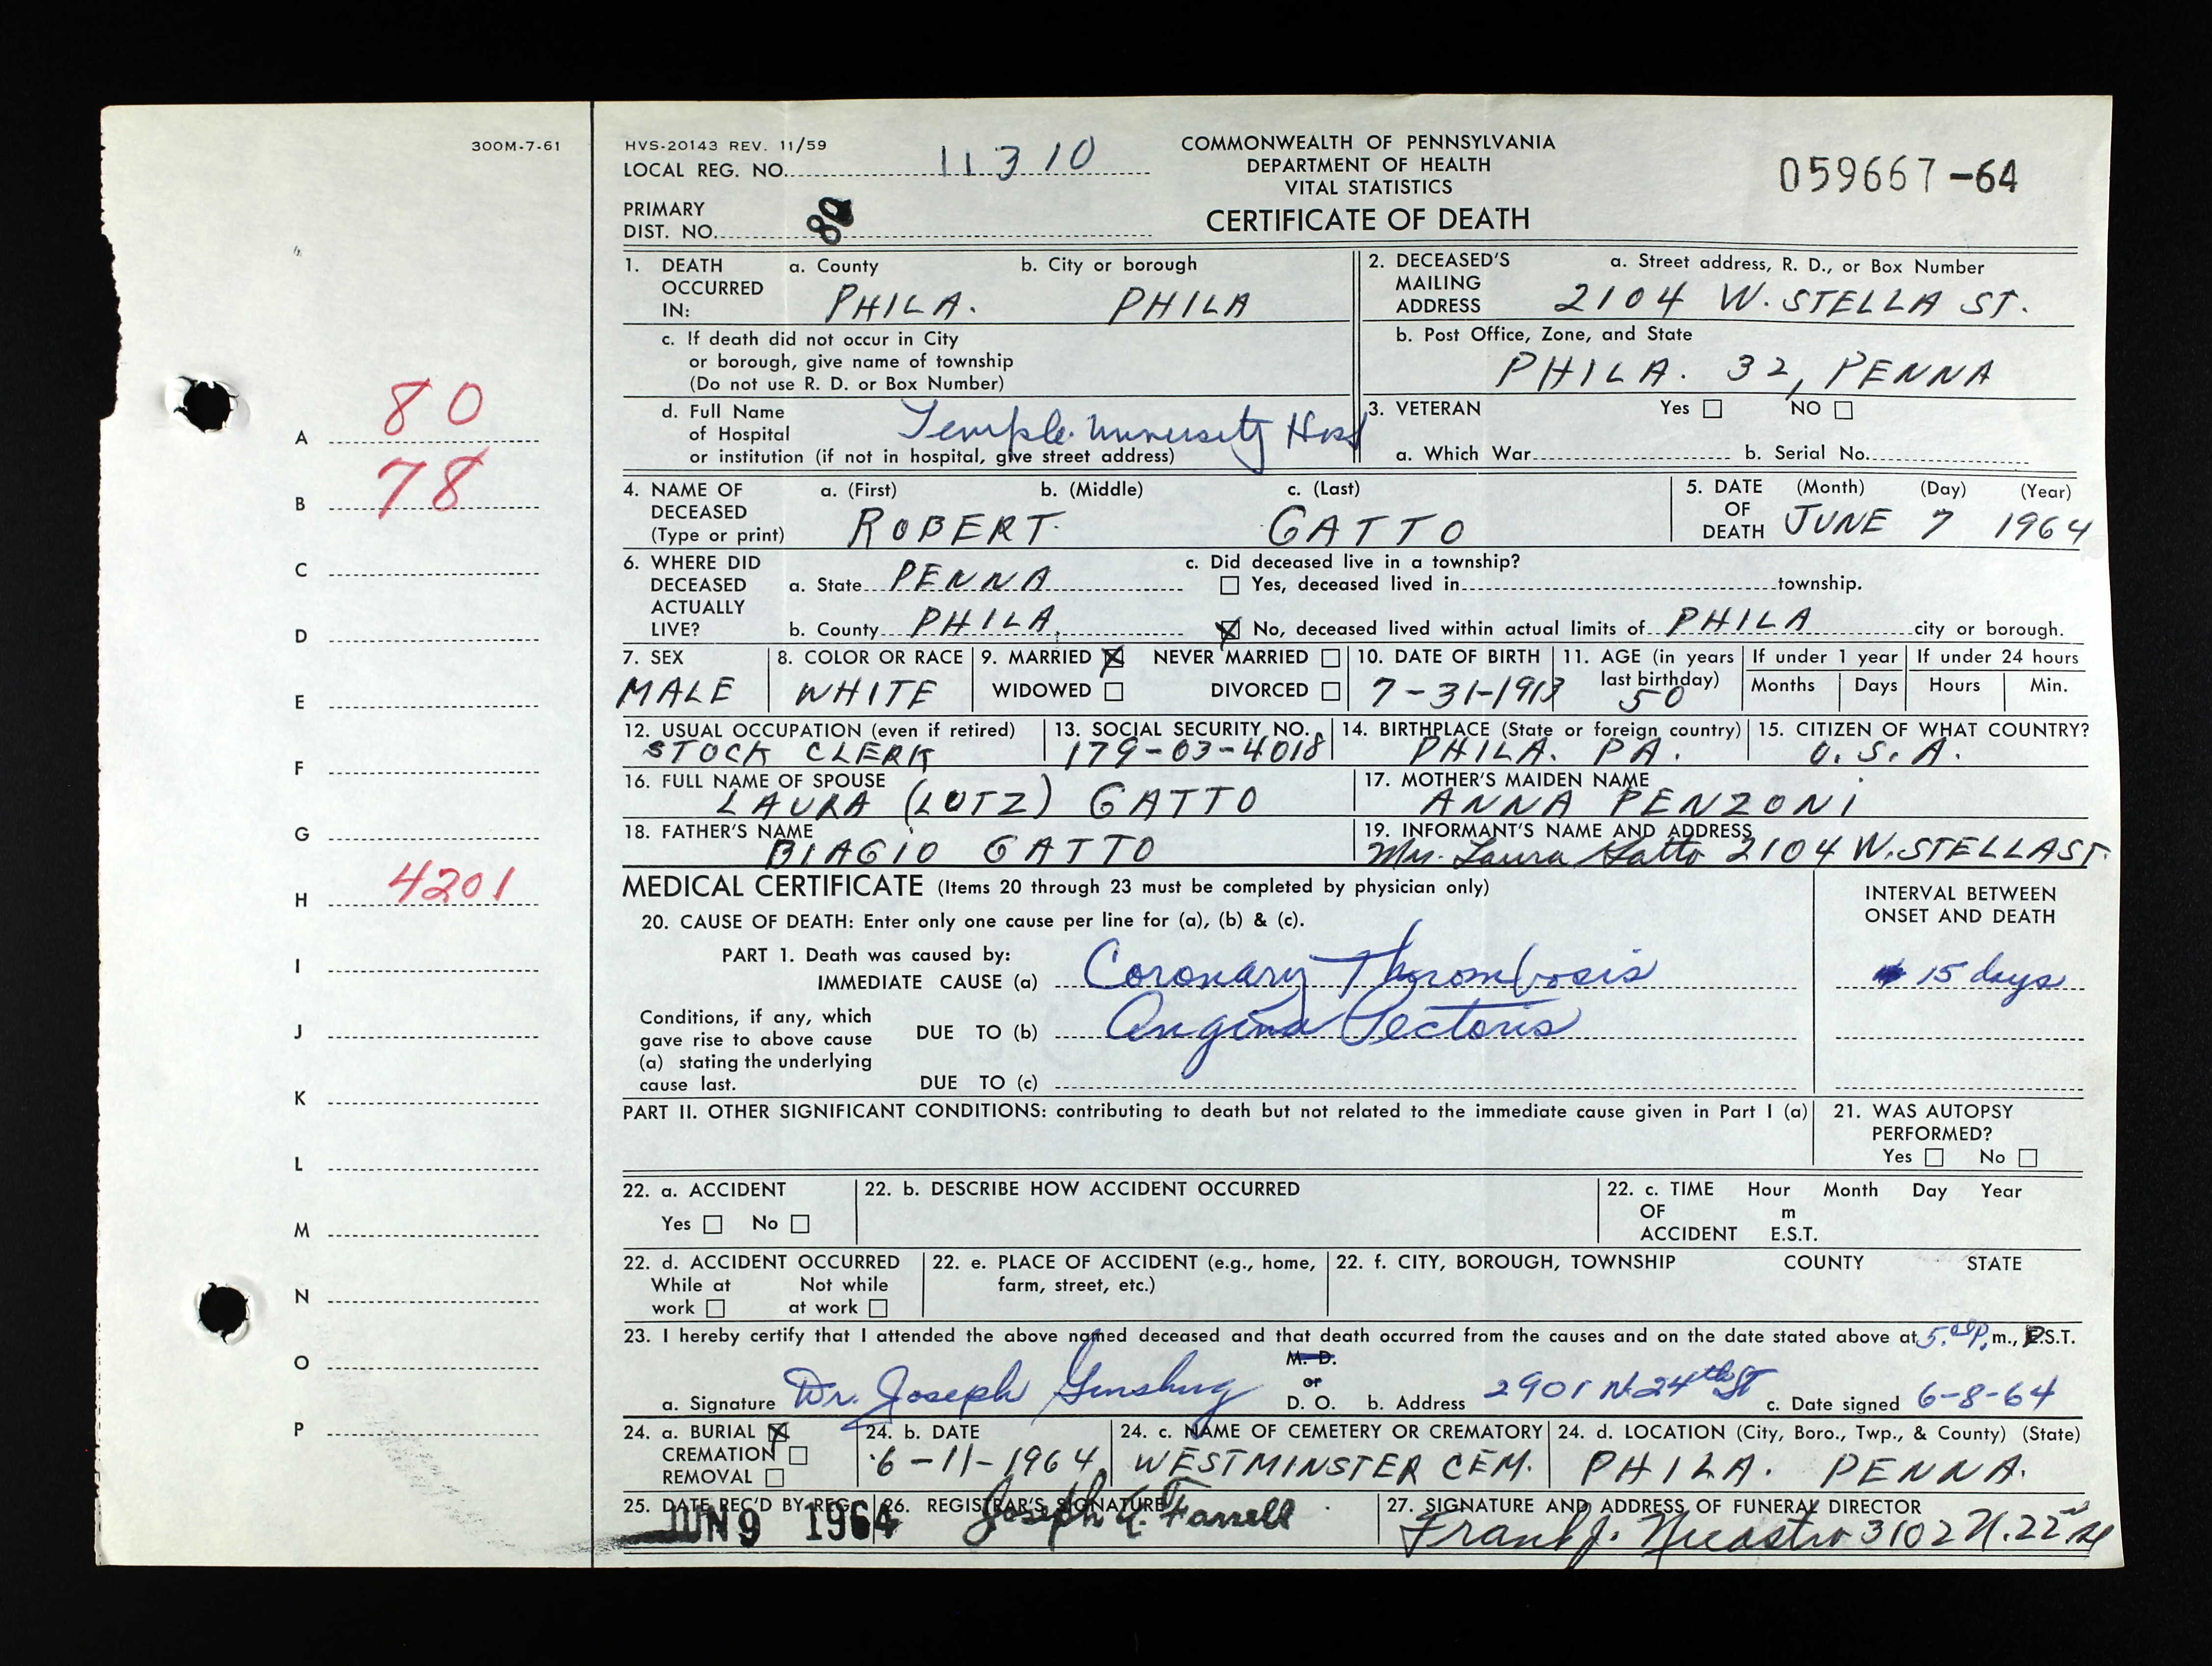 300M-7-61
HVS-20143 REV. 11/59
LOCAL REG. NO. 11310
COMMONWEALTH OF PENNSYLVANIA
DEPARTMENT OF HEALTH
VITAL STATISTICS
CERTIFICATE OF DEATH
059667-64
PRIMARY
DIST. NO. 80
1. DEATH OCCURRED IN: a. County PHILA. b. City or borough PHILA
c. If death did not occur in City
or borough, give name of township
(Do not use R. D. or Box Number)
d. Full Name
of Hospital Temple University Hosp
or institution (if not in hospital, give street address)
2. DECEASED'S MAILING ADDRESS a. Street address, R. D., or Box Number
2104 W. STELLA ST.
b. Post Office, Zone, and State
PHILA. 32, PENNA
3. VETERAN Yes NO
a. Which War b. Serial No.
4. NAME OF DECEASED (Type or print) a. (First) b. (Middle) c. (Last)
ROBERT GATTO
5. DATE OF DEATH (Month) (Day) (Year)
JUNE 7 1964
6. WHERE DID DECEASED ACTUALLY LIVE? a. State PENNA
b. County PHILA.
c. Did deceased live in a township?
Yes, deceased lived in township.
No, deceased lived within actual limits of PHILA city or borough.
7. SEX MALE
8. COLOR OR RACE WHITE
9. MARRIED X NEVER MARRIED
WIDOWED DIVORCED
10. DATE OF BIRTH 7-31-1913
11. AGE (in years last birthday) 50
If under 1 year Months Days
If under 24 hours Hours Min.
12. USUAL OCCUPATION (even if retired) STOCK CLERK
13. SOCIAL SECURITY NO. 179-03-4018
14. BIRTHPLACE (State or foreign country) PHILA. PA.
15. CITIZEN OF WHAT COUNTRY? U.S.A.
16. FULL NAME OF SPOUSE LAURA (LUTZ) GATTO
17. MOTHER'S MAIDEN NAME ANNA PENZONI
18. FATHER'S NAME BIAGIO GATTO
19. INFORMANT'S NAME AND ADDRESS Mrs. Laura Gatto 2104 W. STELLA ST.
MEDICAL CERTIFICATE (Items 20 through 23 must be completed by physician only)
INTERVAL BETWEEN
ONSET AND DEATH
20. CAUSE OF DEATH: Enter only one cause per line for (a), (b) & (c).
PART 1. Death was caused by:
IMMEDIATE CAUSE (a) Coronary Thrombosis 15 days
Conditions, if any, which
gave rise to above cause
(a) stating the underlying
cause last.
DUE TO (b) Angina Pectoris
DUE TO (c)
PART II. OTHER SIGNIFICANT CONDITIONS: contributing to death but not related to the immediate cause given in Part I (a)
21. WAS AUTOPSY
PERFORMED?
Yes No
22. a. ACCIDENT
Yes No
22. b. DESCRIBE HOW ACCIDENT OCCURRED
22. c. TIME OF ACCIDENT Hour Month Day Year
m
E.S.T.
22. d. ACCIDENT OCCURRED
While at work Not while at work
22. e. PLACE OF ACCIDENT (e.g., home,
farm, street, etc.)
22. f. CITY, BOROUGH, TOWNSHIP COUNTY STATE
23. I hereby certify that I attended the above named deceased and that death occurred from the causes and on the date stated above at 5. P. m., S.T.
M. D.
or
D. O.
a. Signature Dr. Joseph Ginsburg b. Address 2901 N 24th St c. Date signed 6-8-64
24. a. BURIAL X
CREMATION
REMOVAL
24. b. DATE
6-11-1964
24. c. NAME OF CEMETERY OR CREMATORY
WESTMINSTER CEM.
24. d. LOCATION (City, Boro., Twp., & County) (State)
PHILA. PENNA.
25. DATE REC'D BY REG.
JUN 9 1964
26. REGISTRAR'S SIGNATURE
Joseph A. Farrell
27. SIGNATURE AND ADDRESS OF FUNERAL DIRECTOR
Frank J. Nicastro 3102 N. 22nd St
A 80
B 78
C
D
E
F
G
H 4201
I
J
K
L
M
N
O
P